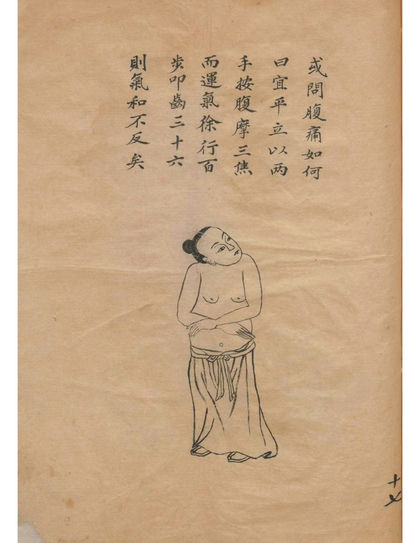 或問腹痛如何
曰宜平立以两
手按腹摩三焦
而運氣徐行百
步叩齒三十六
則氣和不反矣
十七